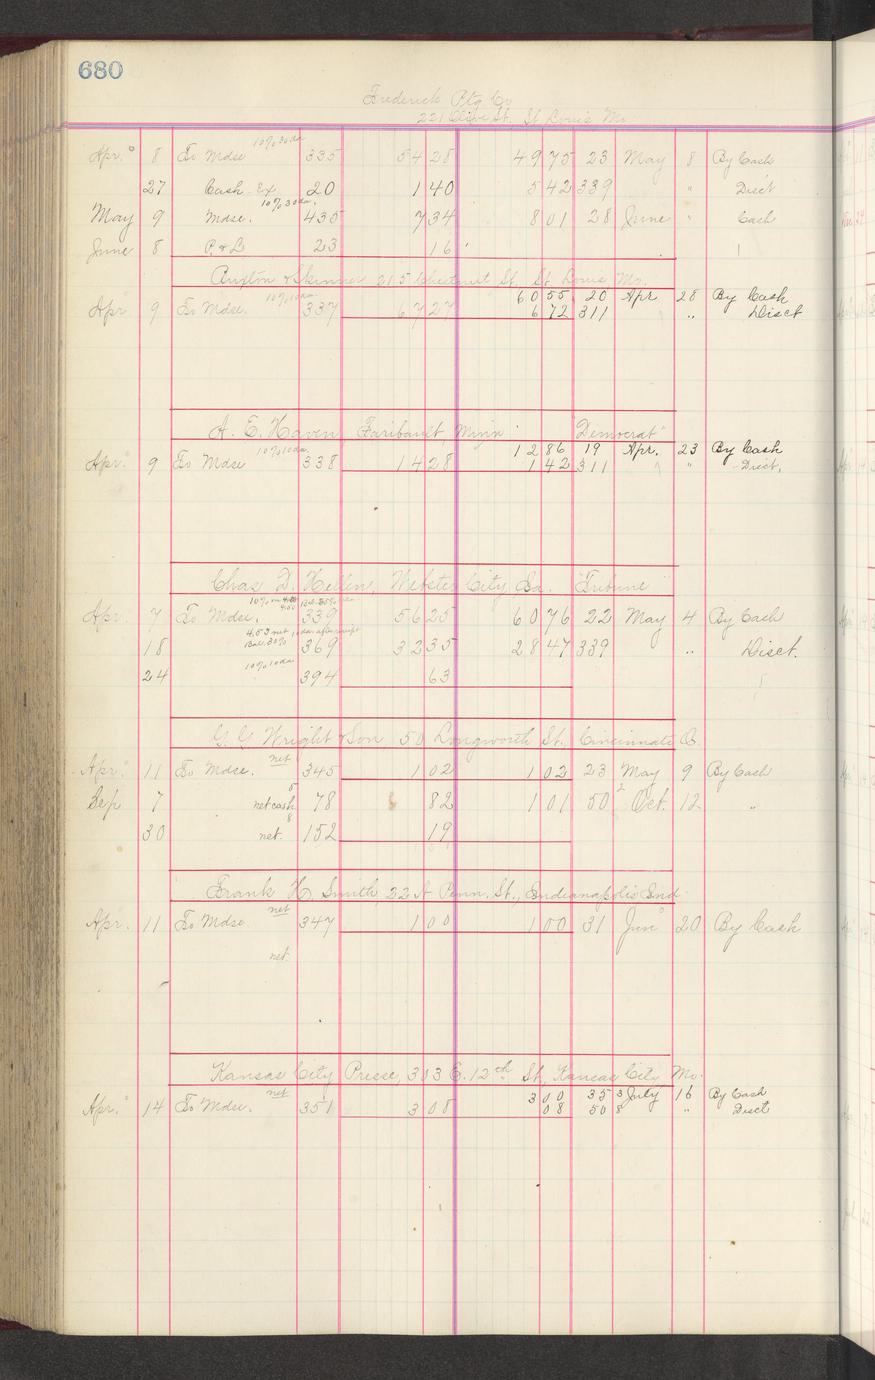 680
Frederick Ptg Co
221 Olive St. St Louis Mo
10% 30 da
Apr. 8 To Mdse 335 54 28 49 75 23 May 8 By Cash
27 Cash Ex 20 1 40 5 42 339 " Disct
10% 30 da.
May 9 Mdse. 435 7 34 8 01 28 June " Cash
June 8 P. & L 23 16
Buxton & Skinner 215 Chestnut St. St. Louis Mo.
10% 10 da 60 55 20 Apr 28 By Cash
Apr 9 To Mdse. 337 67 27 6 72 311 " Disct
A. E. Haven Faribault, Minn "Democrat"
10% 10 da. 12 86 19 Apr. 23 By Cash
Apr. 9 To Mdse 338 14 28 1 42 311 " Disct.
Chas D. Hellen, Webster City Ia. Tribune
Apr. 7 To Mdse. 339 56 25 60 76 22 May 4 By Cash
4.53 net 10 da. after receipt
18 Bal. 30% 369 32 35 28 47 339 " Disct.
24 10% 10 da 394 63
G. G. Wright & Son, 50 Longworth St. Cincinnati O.
Apr. 11 To Mdse. net 345 1 02 1 02 23 May 9 By Cash
Sep 7 net cash 5 78 82 1 01 50 2 Oct. 12 "
30 net. 8 152 19
Frank H. Smith 22 N Penn. St., Indianapolis Ind
Apr. 11 To Mdse net 347 1 00 1 00 31 Jun 20 By Cash
net.
Kansas City Presse, 303 E. 12th St, Kansas City Mo.
3 00 35 3 July 16 By Cash
Apr. 14 To Mdse. net 351 3 08 08 50 8 " Disct